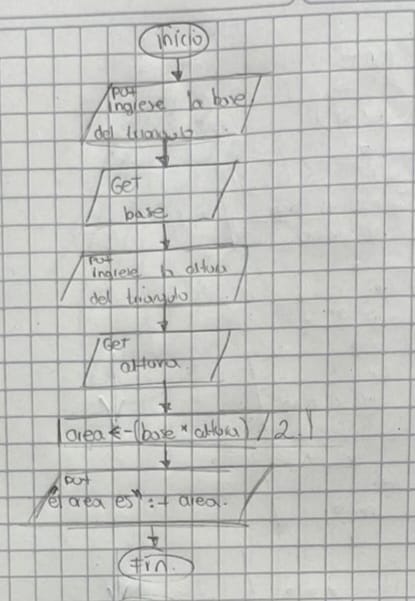 inicio
PUT
Ingrese la base
del triangulo
Get
base
PUT
Ingrese la altura
del triangulo
Get
altura
area ← (base * altura) / 2
PUT
"el area es": + area.
Fin.